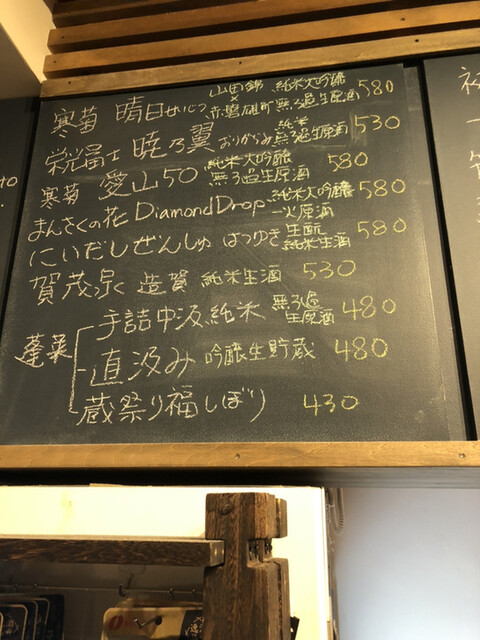 寒菊 晴日せいじつ 山田錦×赤磐雄町 純米大吟醸 無ろ過生原酒 580
栄光冨士 暁乃翼 おりがらみ 純米 無ろ過生原酒 530
寒菊 愛山50 純米大吟醸 無ろ過生原酒 580
まんさくの花 DiamondDrop 純米大吟醸 一火原酒 580
にいだしぜんしゅ はつゆき 生酛 純米生酒 580
賀茂泉 造賀 純米生酒 530
蓬莱
手詰中汲純米 無ろ過生原酒 480
直汲み 吟醸生貯蔵 480
蔵祭り福しぼり 430